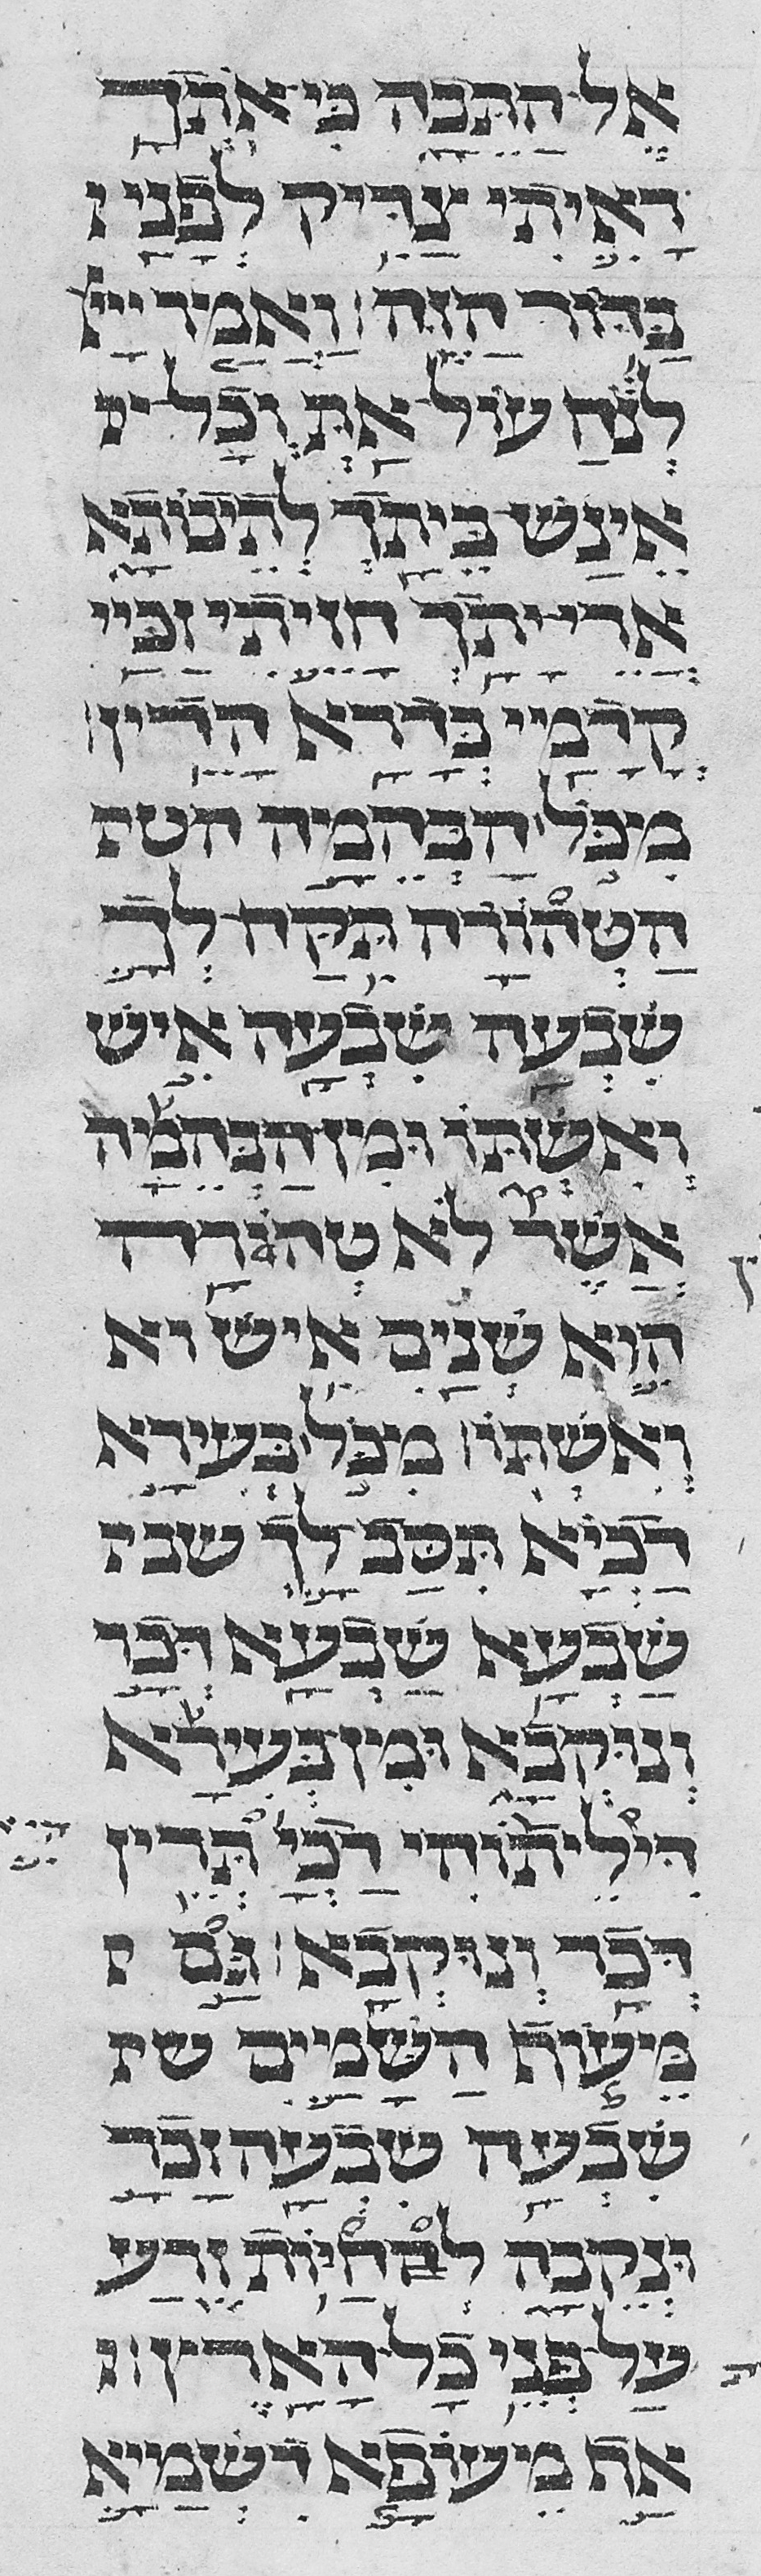 אל התבה כי אתך
ראיתי צדיק לפני ו
בדור הזה׃ ואמר ייי
לנח עול את וכל י
אינש ביתך לתיבותא
ארי יתך חזיתי זכיי
קדמיי בדרא הדין׃
מכל׀ הבהמה הט
הטהורה תקח לך
שבעה שבעה איש
ואשתו ומן הבהמה
אשר לא טהורה
הוא שנים איש וא
ואשתו׃ מכל׀ בעירא
דכיא תסב לך שב
שבעא שבעא דכר
ונוקבא ומן בעירא
דילי׳תוהי דכי׳ תרין
דכר ונוקבא׃ גם
מעוף השמים ש
שבעה שבעה זכר
ונקבה להחיות זרע
על פני כל הארץ׃ ו
אף מעופא דשמיא